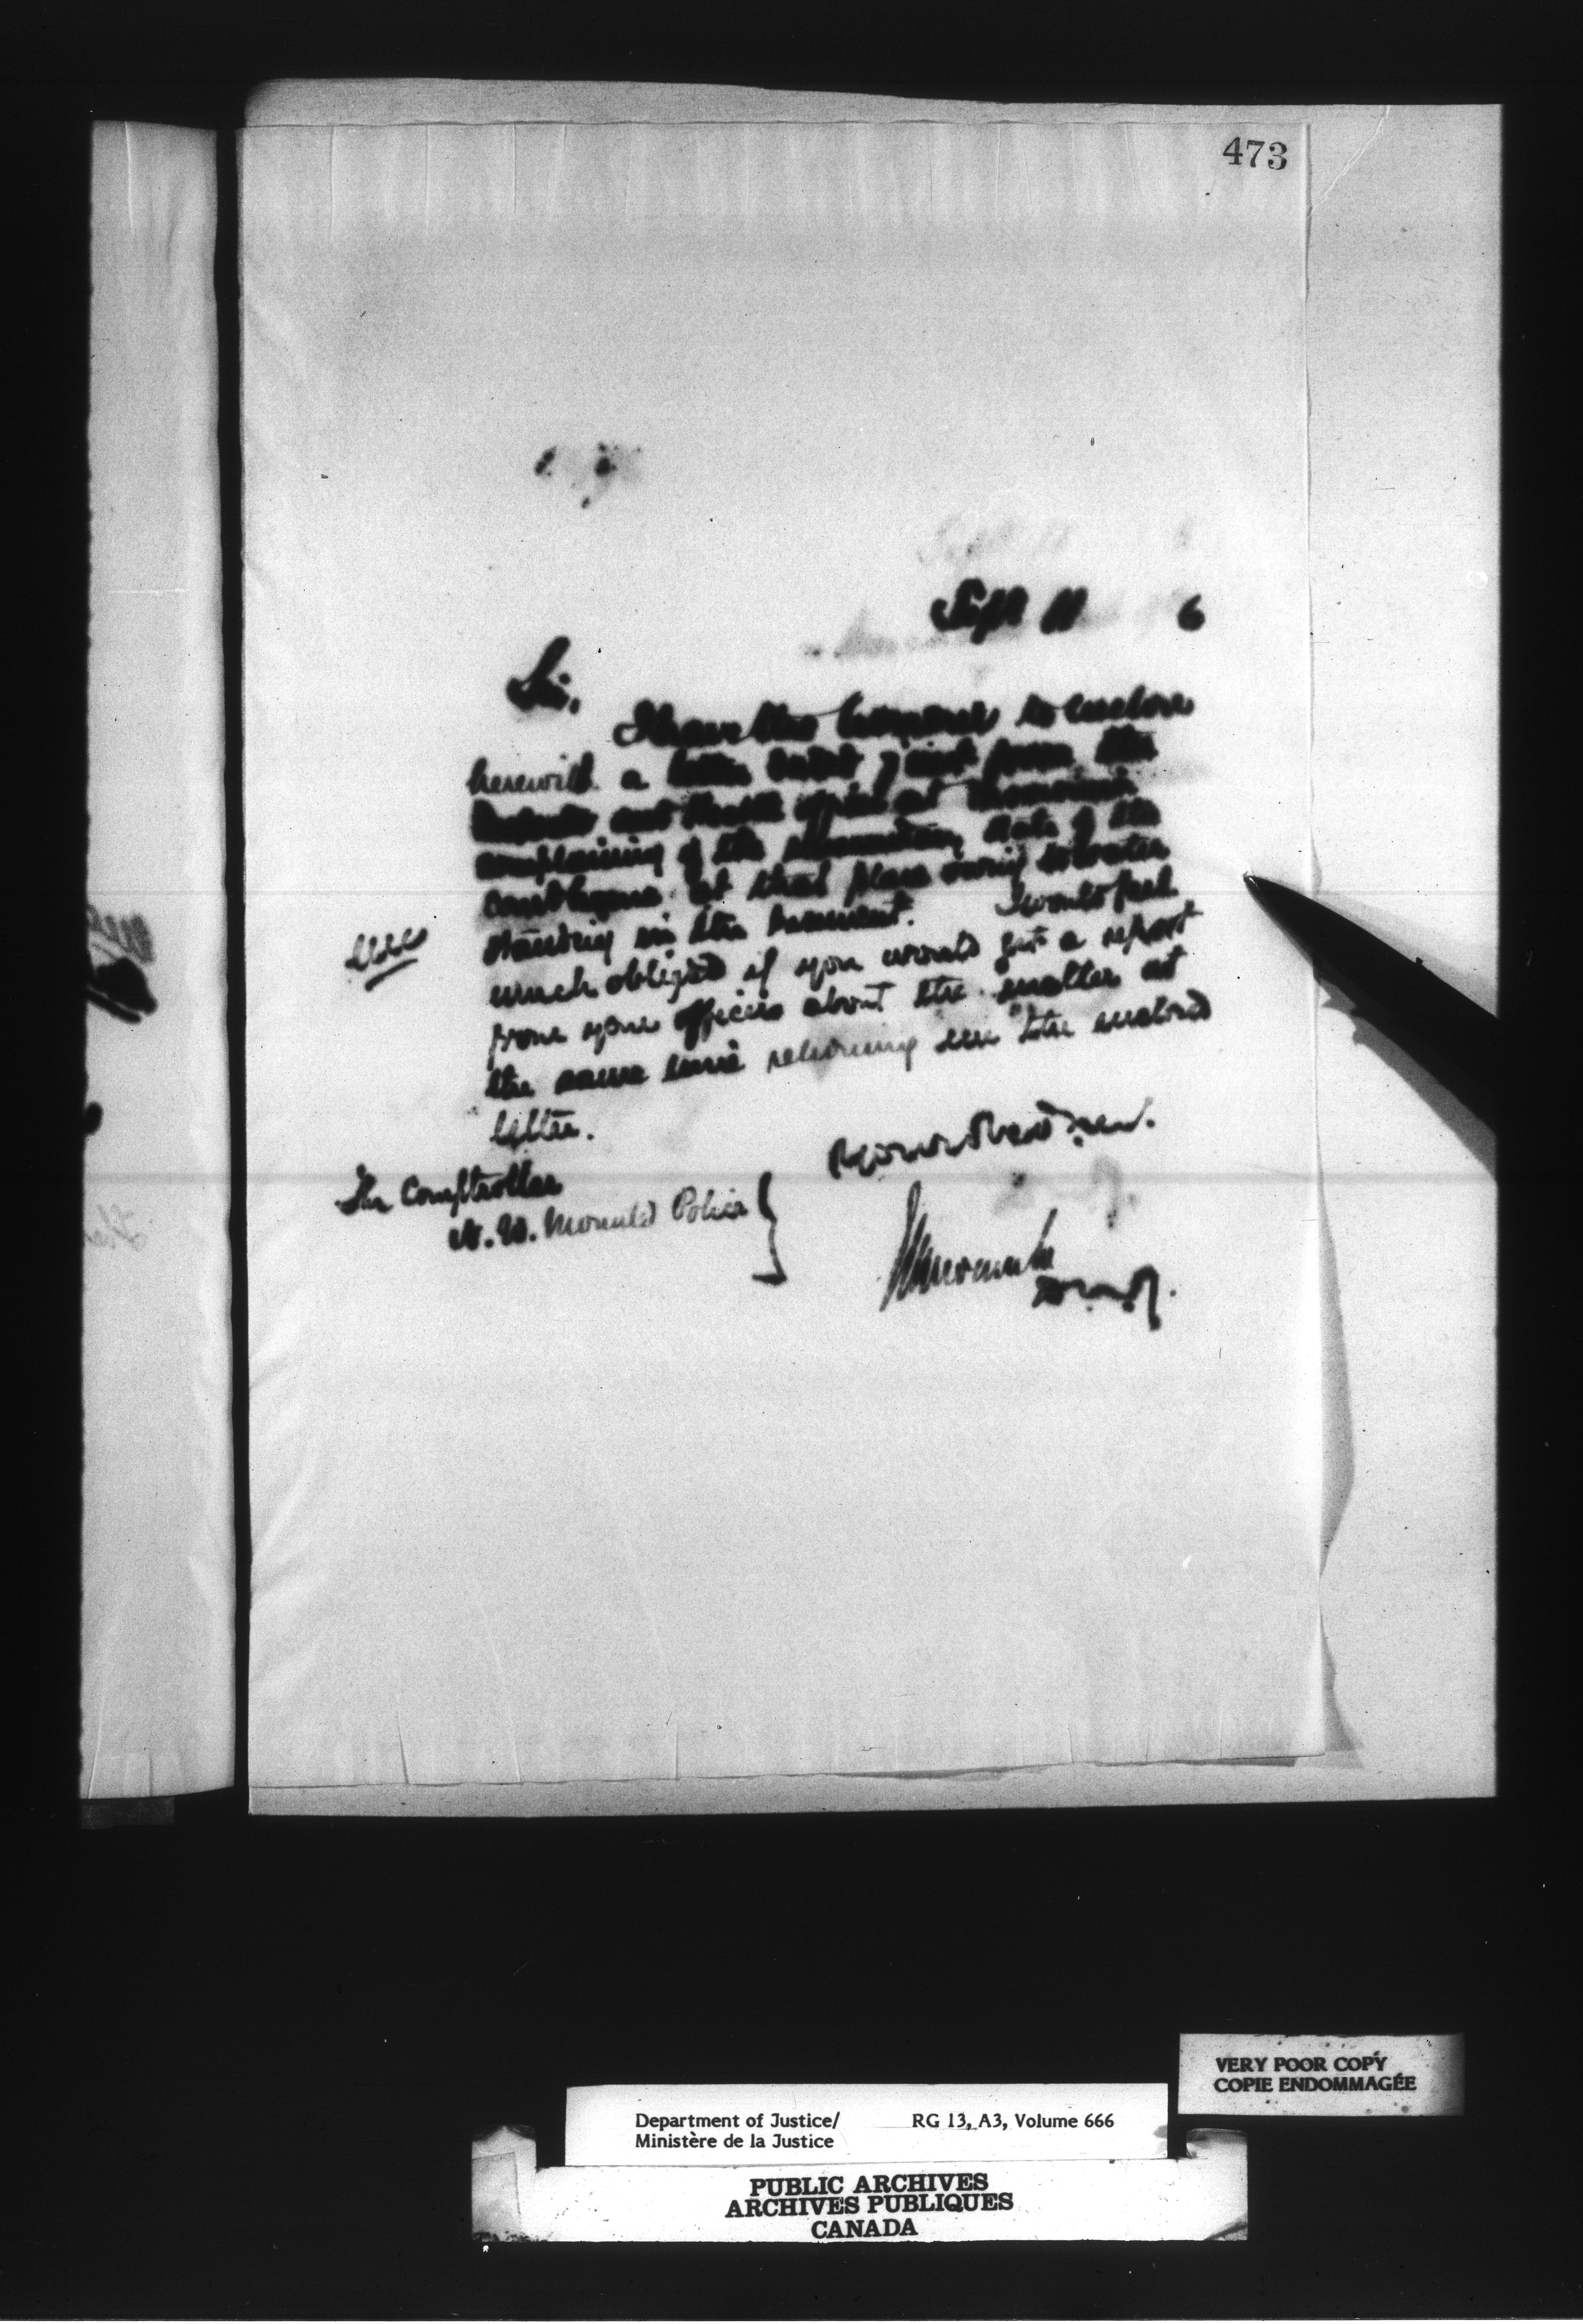 473
Sept 11 6
Sir,
I have the honour to enclose
herewith a letter dated 7 inst from the
and Health officer at
complaining of the state of the
at that place owing to water
standing in the basement. I would feel
much obliged if you would get a report
from your officers about the matter at
the same time returning me the enclosed
letter.
The Comptroller
N. W. Mounted Police
VERY POOR COPY
COPIE ENDOMMAGÉE
Department of Justice/ RG 13, A3, Volume 666
Ministère de la Justice
PUBLIC ARCHIVES
ARCHIVES PUBLIQUES
CANADA